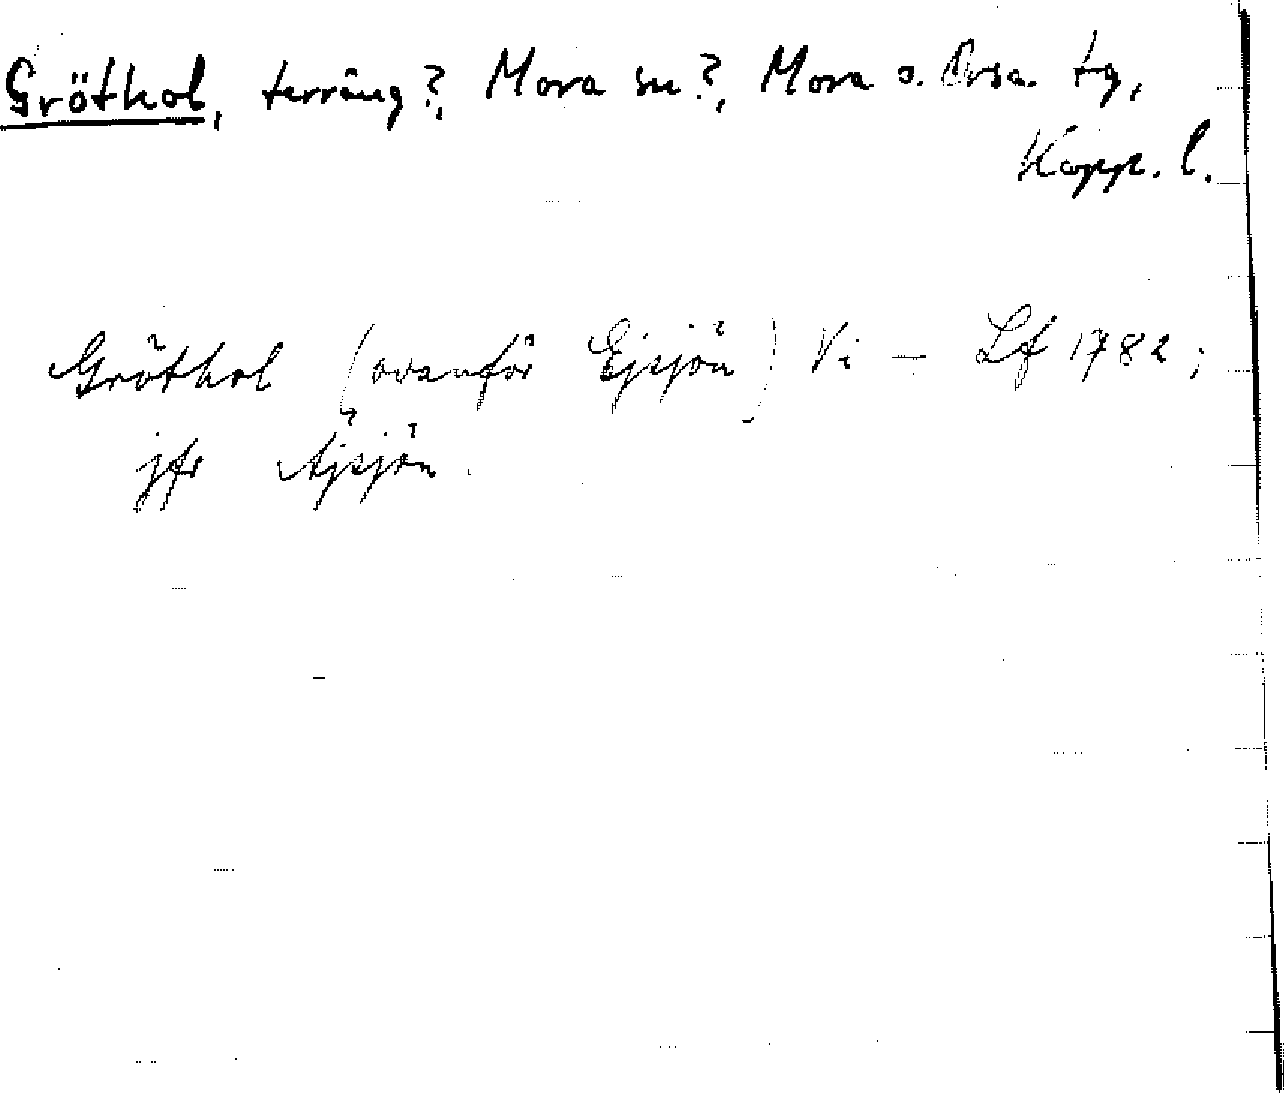 Gröthol, terräng?, Mora sn?, Mora o. Orsa tg,
Kopp. l.
Gröthol (ovanför Ejsjön) Vi – Lf 1782;
jfr Äjsjön.